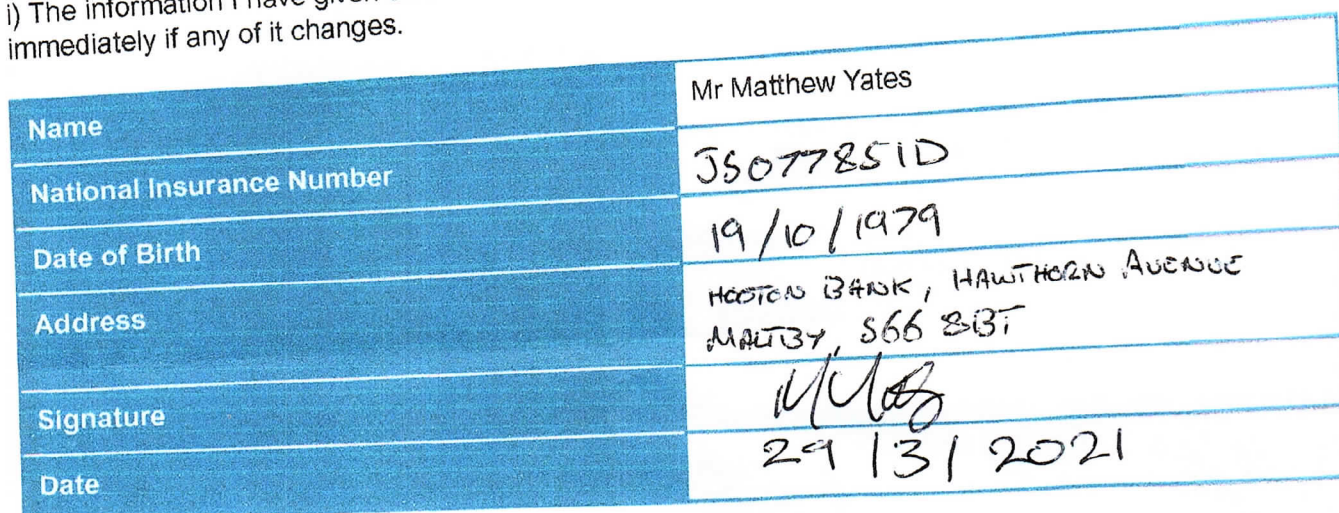 i) The information I have given
immediately if any of it changes.
Name Mr Matthew Yates
National Insurance Number JS077851D
Date of Birth 19/10/1979
Address HOOTON BANK, HAWTHORN AVENUE
MALTBY, S66 8BT
Signature
Date 29/3/2021